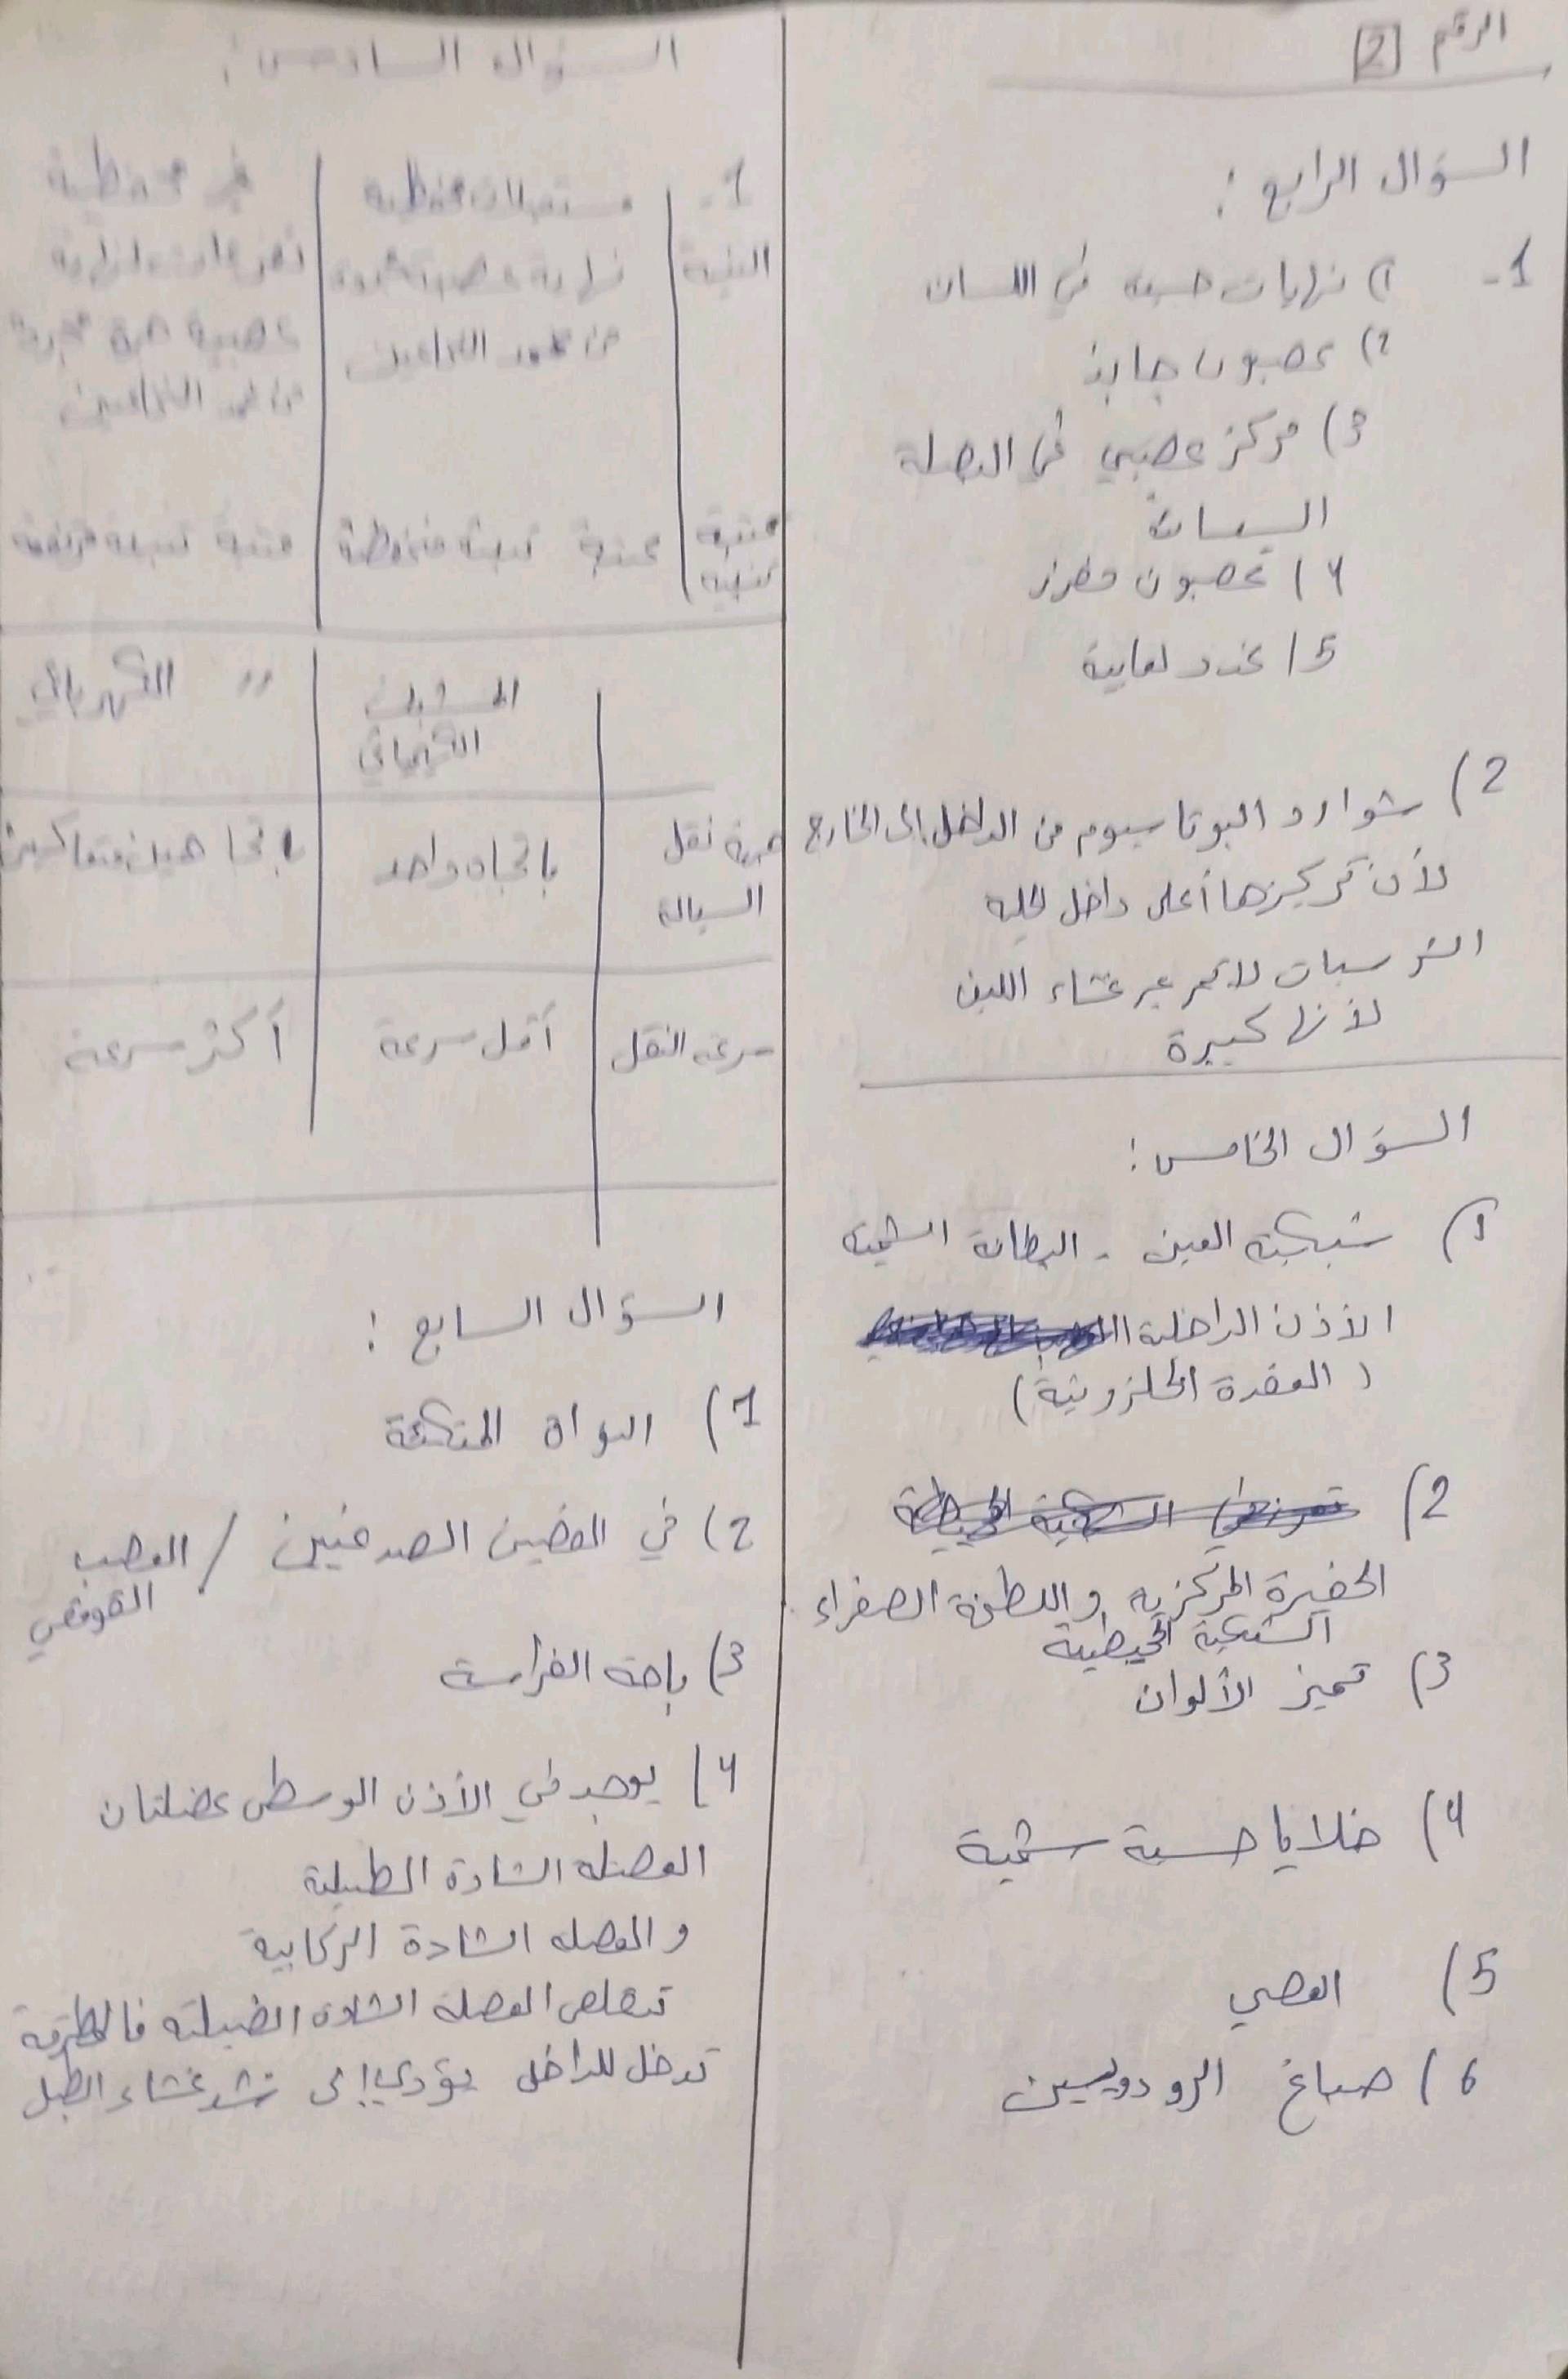 الرقم [2]
السؤال الرابع :
1- 1) نهايات حسية في اللسان
2) عصبون جابذ
3) مركز عصبي في البصلة
السيسائية
4) عصبون مفرز
5) غدد لعابية
2) شوارد البوتاسيوم من الداخل إلى الخارج
لأن تركيزها أعلى داخل الخلية
الشرسبات لا تمر عبر غشاء الليف
لأنها كبيرة
السؤال الخامس :
1) شبكية العين - البطانة الشمية
الأذن الداخلية
( العقدة الحلزونية )
2)
الحفيرة المركزية واللطخة الصفراء
الشبكية المحيطية
3) تمييز الألوان
4) خلايا حسية شمية
5) العصي
6) صباغ الرودوبسين
السؤال السادس :
1- مستقبلات محفظية | غير محفظية
البنية | نهاية عصبية مجردة | تفرعات نهاية
من غمد النخاعين | عصبية حرة مجردة
من غمد النخاعين
عتبة | عتبة تنبيه منخفضة | عتبة تنبيه مرتفعة
المشبك | " الكهربائي
الكيميائي
جهة نقل | باتجاه واحد | باتجاهين متعاكسين
السيالة
سرعة النقل | أقل سرعة | أكثر سرعة
السؤال السابع :
1) النواة المتكئة
2) في الفصين الصدغيين / العصب
القوقعي
3) باحة الفراسة
4) يوجد في الأذن الوسطى عضلتان
العضلة الشادة الطبلية
والعضلة الشادة الركابية
تتقلص العضلة الشادة الطبلية فالمطرقة
تدخل للداخل يؤدي إلى شد غشاء الطبل